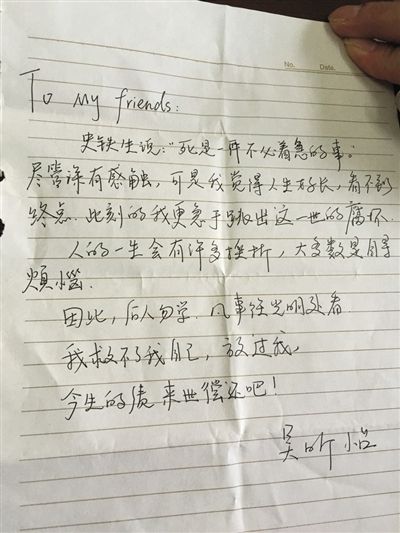 No. Date.
To My friends:
史铁生说:“死是一件不必着急的事。”
尽管深有感触,可是我觉得人生好长,看不到
终点.此刻的我更急于跳出这一世的腐坏.
人的一生会有许多挫折,大多数是自寻
烦恼.
因此,后人勿学.凡事往光明处看.
我救不了我自己,放过我,
今生的债来世偿还吧!
吴昕怡